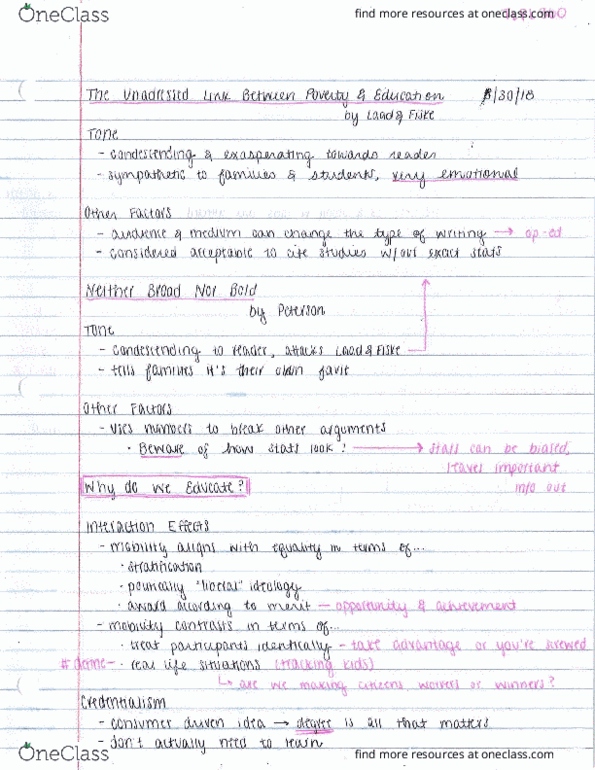 OneClass find more resources at oneclass.com
The Unadressed Link Between Poverty & Education 8/30/18
by Ladd & Fiske
Tone
- condescending & exasperating towards reader
- sympathetic to families & students, very emotional
Other Factors
- audience & medium can change the type of writing → op-ed
- considered acceptable to cite studies w/out exact stats
Neither Broad Nor Bold
by Peterson
Tone
- condescending to reader, attacks Ladd & Fiske
- tells families it's their own fault
Other Factors
- Uses numbers to break other arguments
· Beware of how stats look! → stats can be biased,
leaves important
info out
Why do we Educate?
Interaction Effects
- mobility aligns with equality in terms of...
· stratification
· politically "liberal" ideology
· award according to merit - opportunity & achievement
- mobility contrasts in terms of...
· treat participants identically - take advantage or you're screwed
# define - · real life situations (tracking kids)
↳ are we making citizens, workers or winners?
Credentialism
- consumer driven idea → degree is all that matters
- don't actually need to learn
OneClass find more resources at oneclass.com